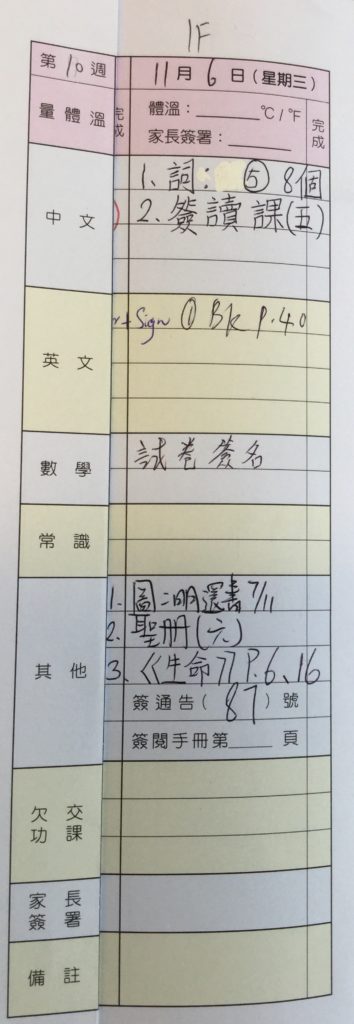 1F
第10週 11月6日(星期三)
量體溫 完成 體溫:______℃/℉ 完成
家長簽署:______
中文 1、詞: ⑤ 8個
2、簽讀課(五)
英文 + Sign ① BK P.40
數學 試卷簽名
常識
其他 1. 圖:明還書 7/11
2. 聖冊(六)
3、《生命》P.6、16
簽通告(87)號
簽閱手冊第____頁
欠交功課
家長簽署
備註